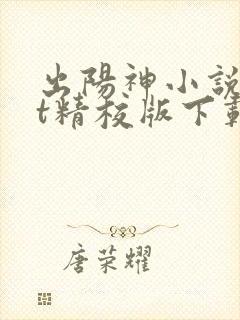 出陽神小說
t精校版下載
唐荣耀